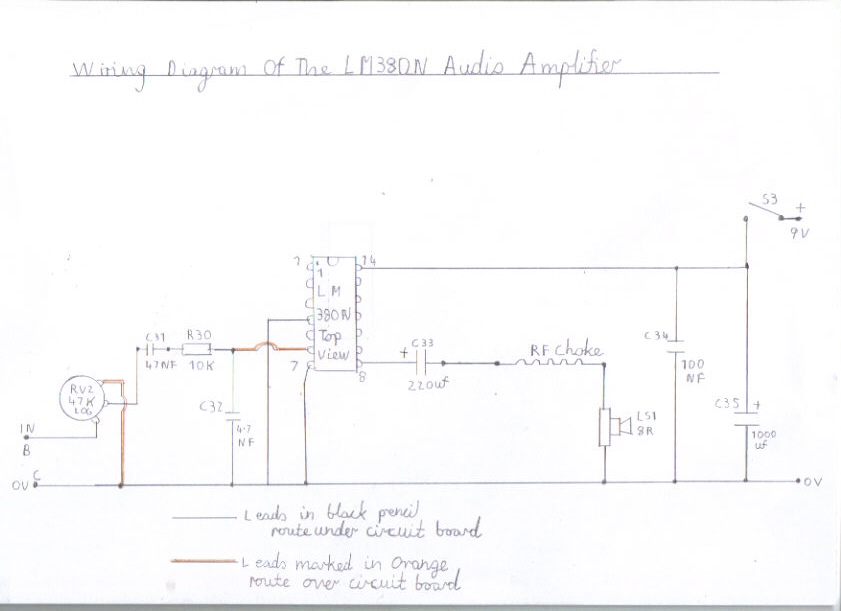 Wiring Diagram Of The LM380N Audio Amplifier
S3
+
9V
1 14
1
LM
380N
Top
View
7
8
C31
47NF
R30
10K
+ C33
220uf
RF Choke
C34
100
NF
RV2
47K
LOG
C32
4.7
NF
LS1
8R
C35 +
1000
uf
IN
B
C
0V
0V
Leads in black pencil
route under circuit board
Leads marked in Orange
route over circuit board